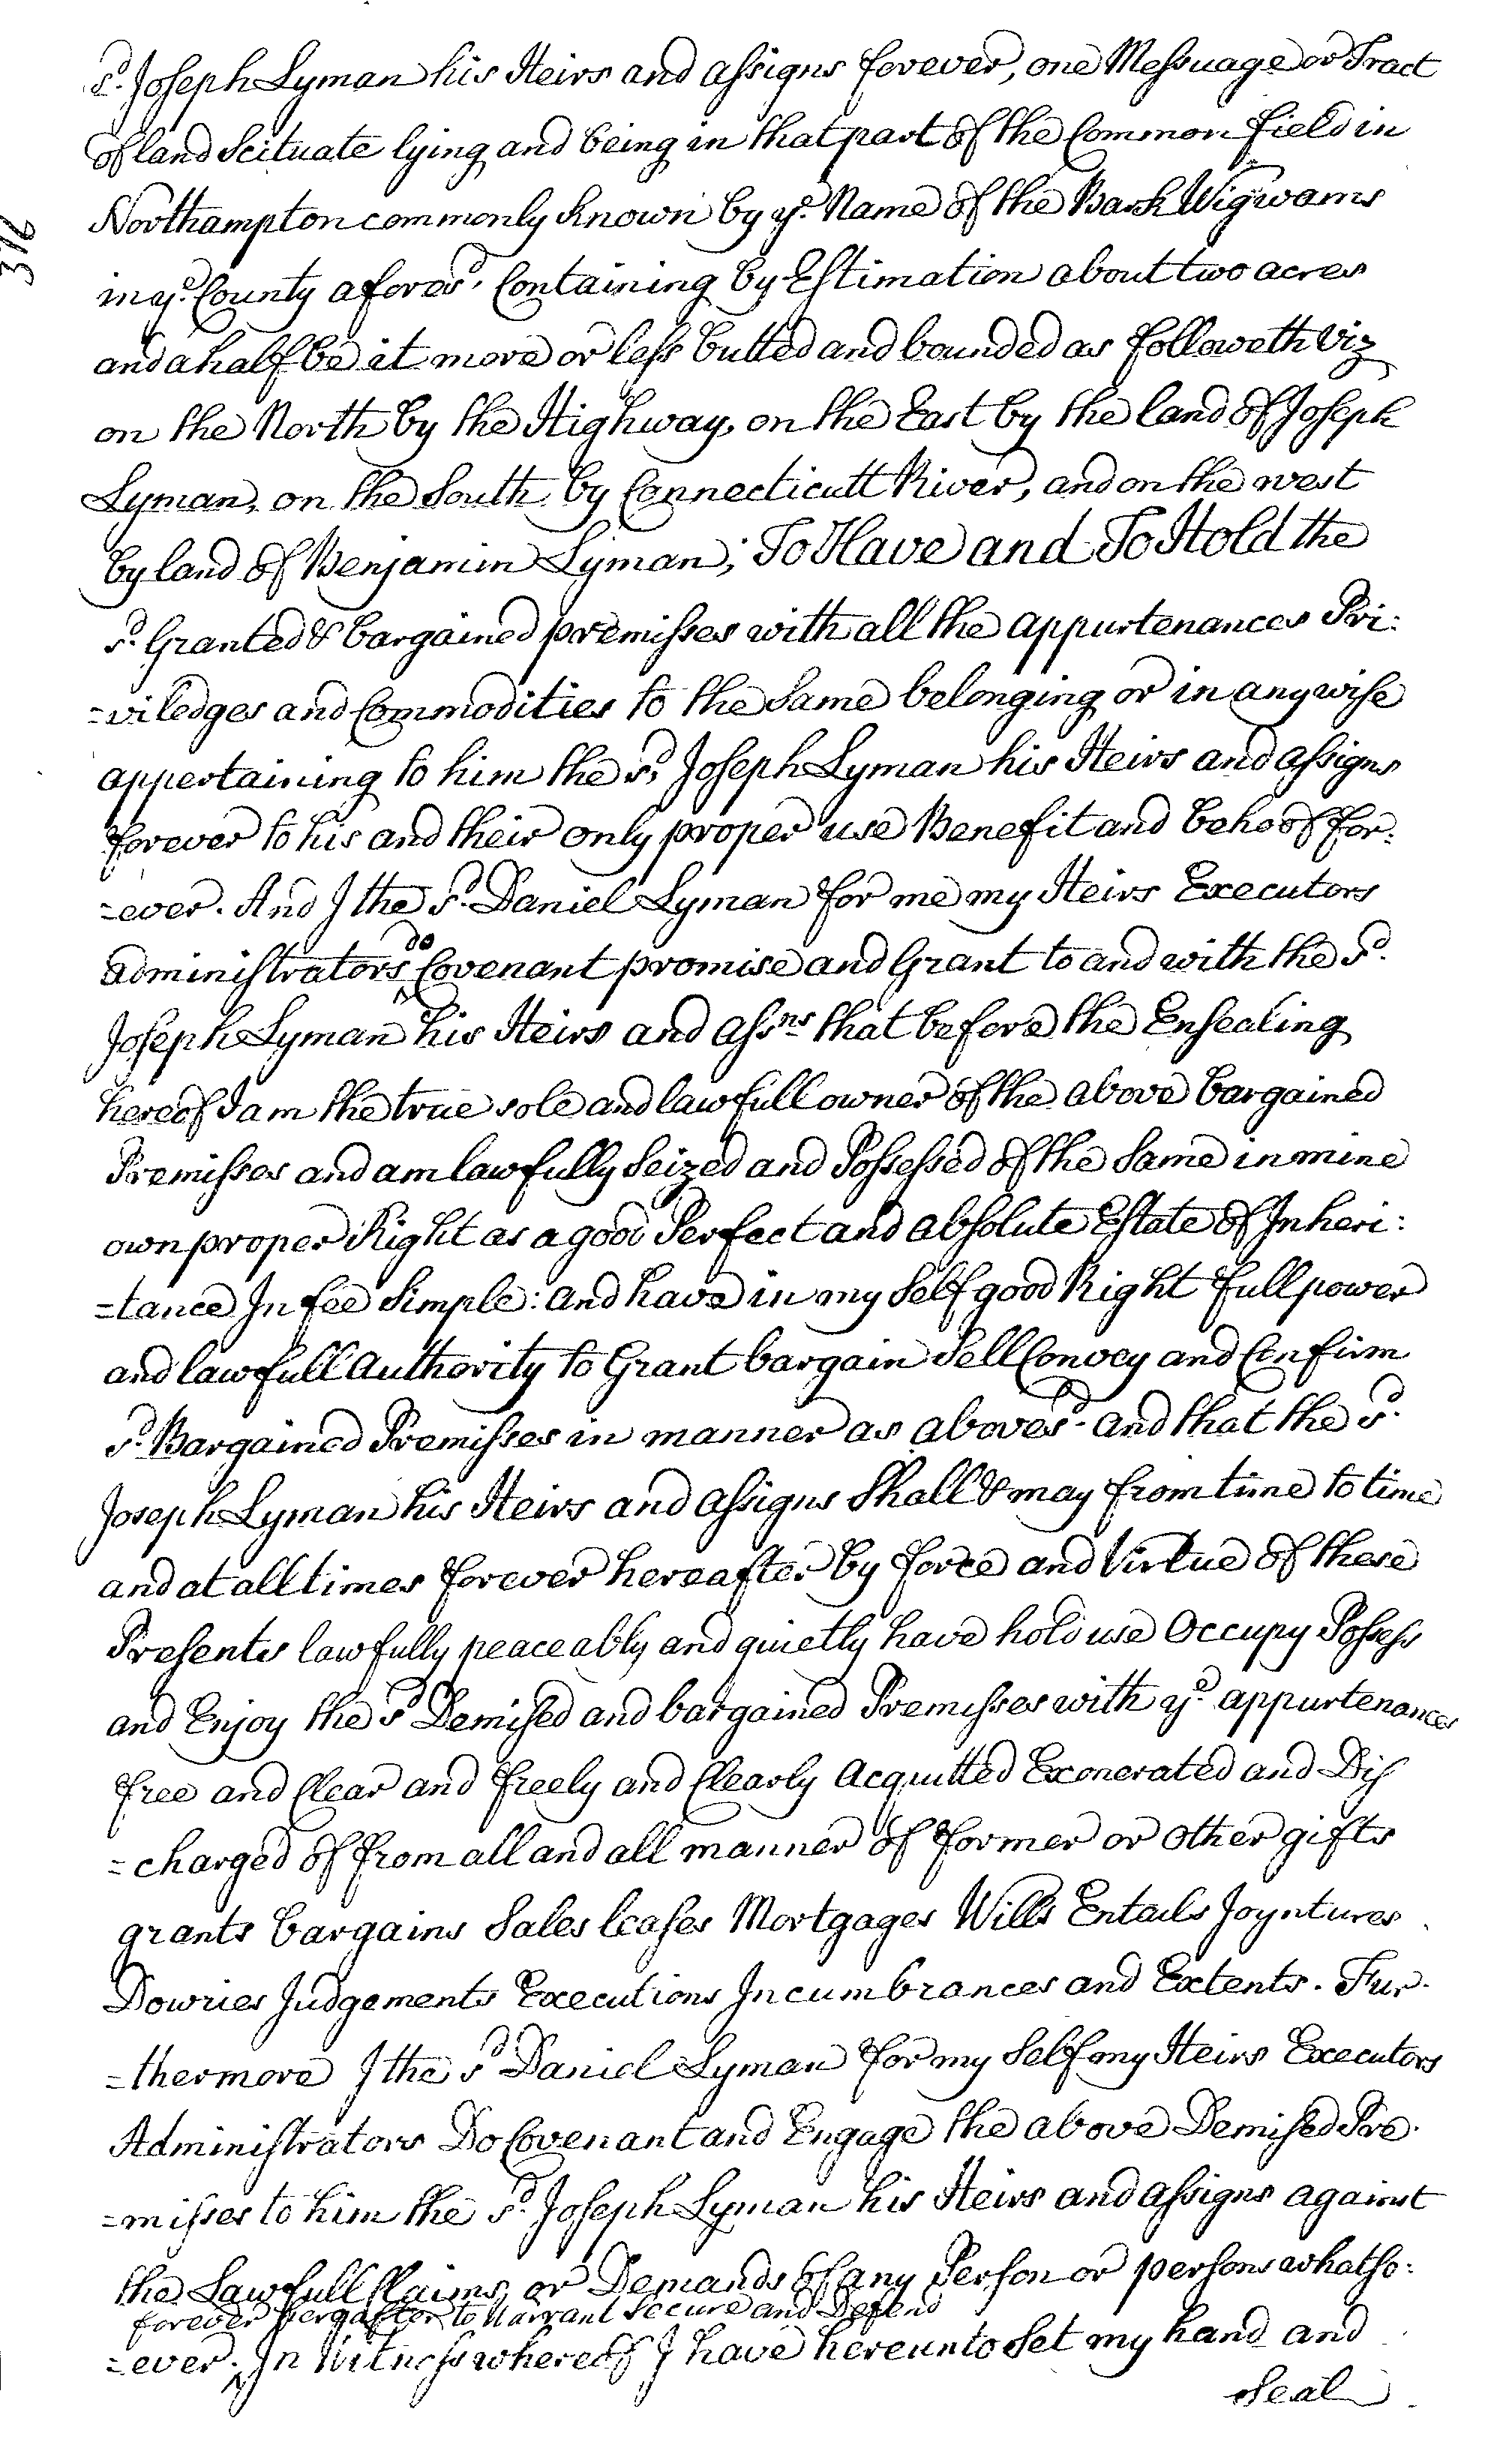 316
sd. Joseph Lyman his Heirs and assigns forever, one Messuage or Tract
of land Scituate lying and being in that part of the Common field in
Northampton commonly known by ye. Name of the Bark Wigwams
in ye. County aforesd. Containing by Estimation about two acres
and a half be it more or less butted and bounded as followeth Viz
on the North by the Highway, on the East by the land of Joseph
Lyman, on the South by Connecticutt River, and on the west
by land of Benjamin Lyman; To Have and To Hold the
sd. Granted & bargained premisses with all the appurtenances Pri:
=viledges and Commodities to the Same belonging or in any wise
appertaining to him the sd. Joseph Lyman his Heirs and assigns
forever to his and their only proper use Benefit and behoof for:
=ever. And I the sd. Daniel Lyman for me my Heirs Executors
administrators do Covenant promise and Grant to and with the sd.
Joseph Lyman his Heirs and assns that before the Ensealing
hereof I am the true sole and lawfull owner of the above bargained
Premisses and am lawfully Seized and Possessed of the Same in mine
own proper Right as a good Perfect and absolute Estate of Inheri:
=tance In fee Simple: and have in my Self good Right full power
and lawfull authority to Grant bargain Sell Convey and Confirm
sd. Bargained Premisses in manner as abovesd. and that the sd.
Joseph Lyman his Heirs and assigns Shall & may from time to time
and at all times forever hereafter by force and Virtue of these
Presents lawfully peaceably and quietly have hold use Occupy Possess
and Enjoy the sd Demised and bargained Premisses with ye. appurtenances
free and Clear and freely and Clearly acquitted Exonerated and Dis
=charged of from all and all manner of former or other gifts
grants bargains Sales leases Mortgages Wills Entails Joyntures
Dowries Judgements Executions Incumbrances and Extents. Fur.
=thermore I the sd Daniel Lyman for my Self my Heirs Executors
Administrators Do Covenant and Engage the above Demised Pre.
=misses to him the sd. Joseph Lyman his Heirs and assigns against
the Lawfull Claims or Demands of any Person or persons whatso:
forever hereafter to Warrant Secure and Defend
=ever. In Witness whereof I have hereunto Set my hand and
Seal